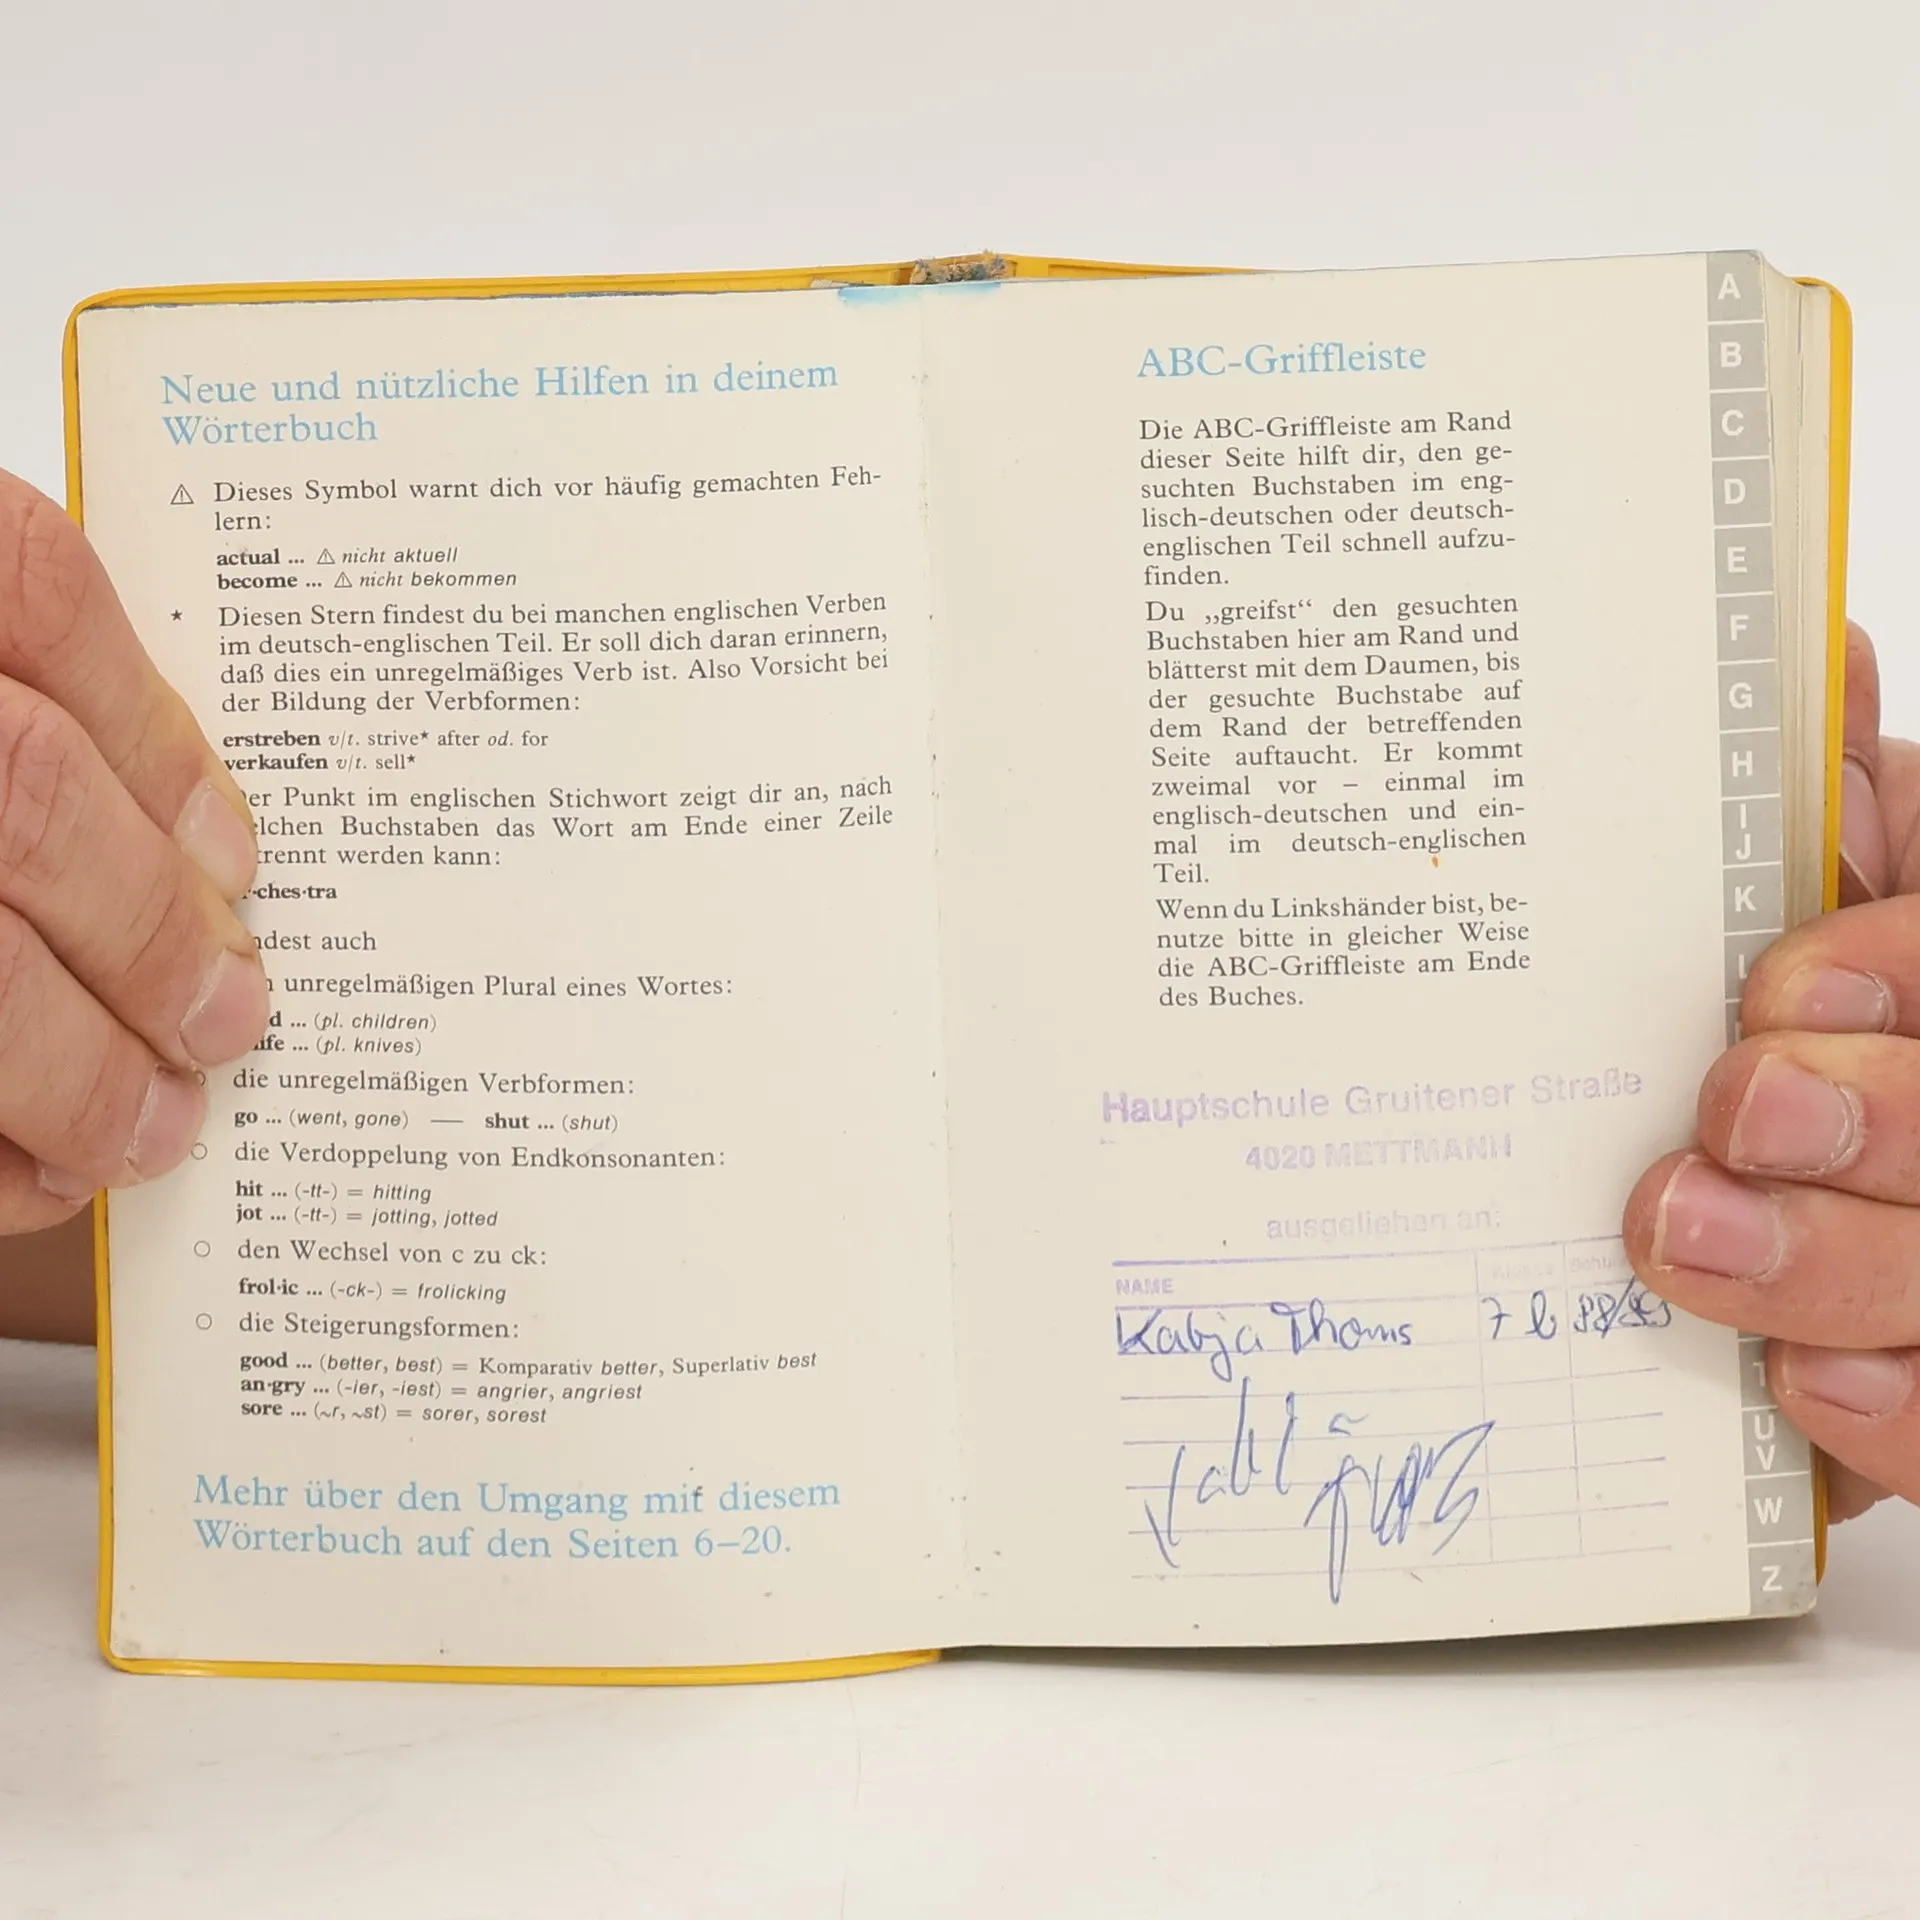 Neue und nützliche Hilfen in deinem
Wörterbuch
⚠ Dieses Symbol warnt dich vor häufig gemachten Feh-
lern:
actual ... ⚠ nicht aktuell
become ... ⚠ nicht bekommen
* Diesen Stern findest du bei manchen englischen Verben
im deutsch-englischen Teil. Er soll dich daran erinnern,
daß dies ein unregelmäßiges Verb ist. Also Vorsicht bei
der Bildung der Verbformen:
erstreben v/t. strive* after od. for
verkaufen v/t. sell*
er Punkt im englischen Stichwort zeigt dir an, nach
lchen Buchstaben das Wort am Ende einer Zeile
trennt werden kann:
·ches·tra
ndest auch
unregelmäßigen Plural eines Wortes:
d ... (pl. children)
ife ... (pl. knives)
○ die unregelmäßigen Verbformen:
go ... (went, gone) — shut ... (shut)
○ die Verdoppelung von Endkonsonanten:
hit ... (-tt-) = hitting
jot ... (-tt-) = jotting, jotted
○ den Wechsel von c zu ck:
frol·ic ... (-ck-) = frolicking
○ die Steigerungsformen:
good ... (better, best) = Komparativ better, Superlativ best
an·gry ... (-ier, -iest) = angrier, angriest
sore ... (~r, ~st) = sorer, sorest
Mehr über den Umgang mit diesem
Wörterbuch auf den Seiten 6–20.
ABC-Griffleiste
Die ABC-Griffleiste am Rand
dieser Seite hilft dir, den ge-
suchten Buchstaben im eng-
lisch-deutschen oder deutsch-
englischen Teil schnell aufzu-
finden.
Du „greifst“ den gesuchten
Buchstaben hier am Rand und
blätterst mit dem Daumen, bis
der gesuchte Buchstabe auf
dem Rand der betreffenden
Seite auftaucht. Er kommt
zweimal vor – einmal im
englisch-deutschen und ein-
mal im deutsch-englischen
Teil.
Wenn du Linkshänder bist, be-
nutze bitte in gleicher Weise
die ABC-Griffleiste am Ende
des Buches.
Hauptschule Gruitener Straße
4020 METTMANN
ausgeliehen an:
NAME Klasse
Katja Thoms 7 b 88/89
A
B
C
D
E
F
G
H
I
J
K
L
T
U
V
W
Z